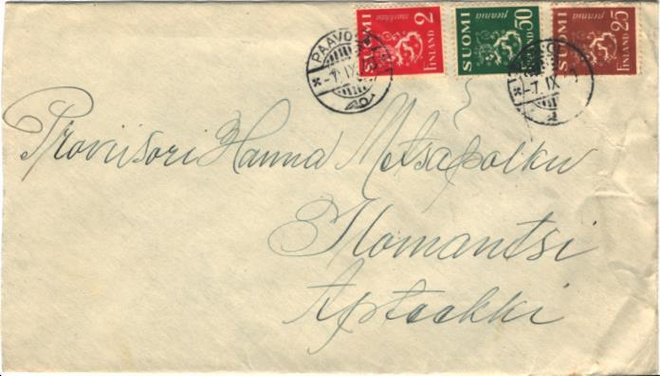 SUOMI markkaa 2 FINLAND
SUOMI penniä 50 FINLAND
SUOMI penniä 25 FINLAND
PAAVO
-7. IX
-7. IX
Proviisori Hanna Metsäpolku
Ilomantsi
Apteekki